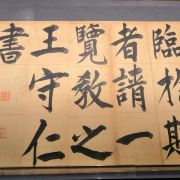 臨於斯
者請一
覽教之
王守仁
書